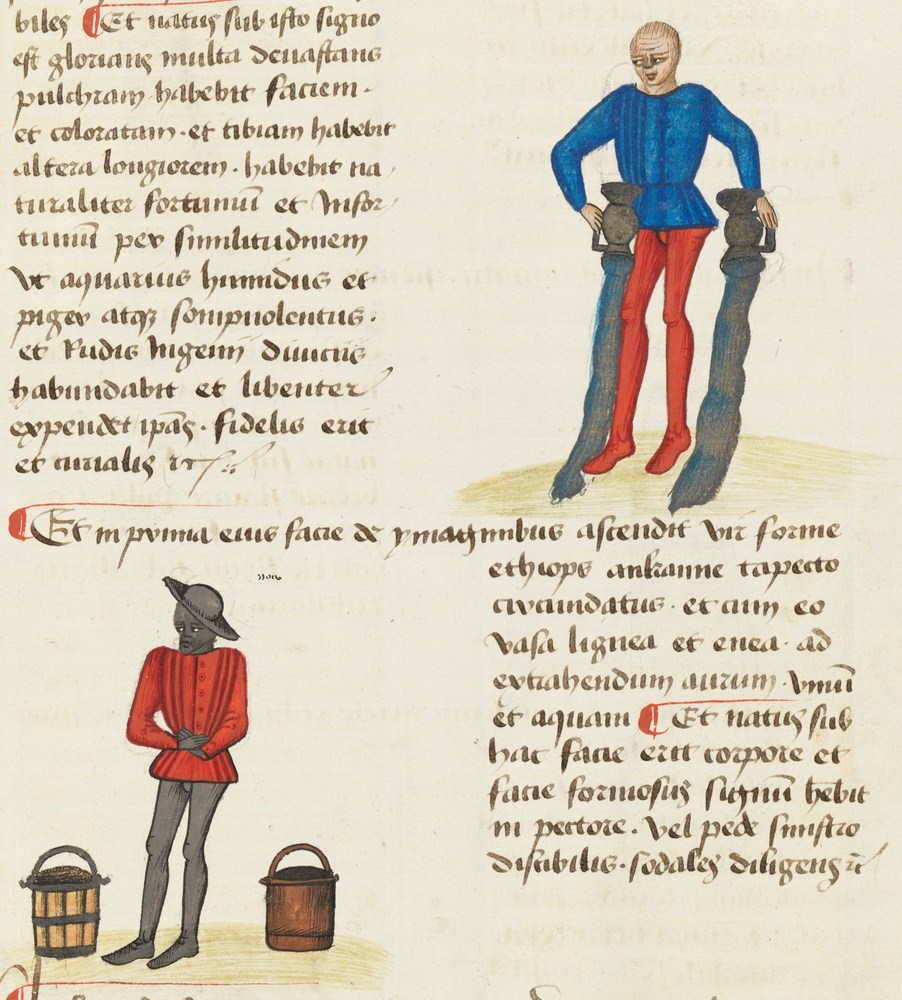 biles Et natus sub isto signo
est glorians multa devastans
pulchram habebit faciem ·
et coloratam · et tibiam habebit
altera longiorem · habebit na
turaliter fortuniū et Infor
tuniū per similitudinem
Vt aquarius humidus et
piger atqꝫ sompnolentus ·
et Rudis Ingenij diuiciis
habundabit et libenter
expendet ipās · fidelis erit
et curialis
Et in prima eius facie de ymaginibus ascendit vir forme
ethiops tapecto
circundatus · et cum eo
vasa lignea et enea · ad
extrahendum aurum · vinū
et aquam Et natus sub
hac facie erit corpore et
facie formosus signū hēbit
in pectore · vel pede sinistro
sodales diligens